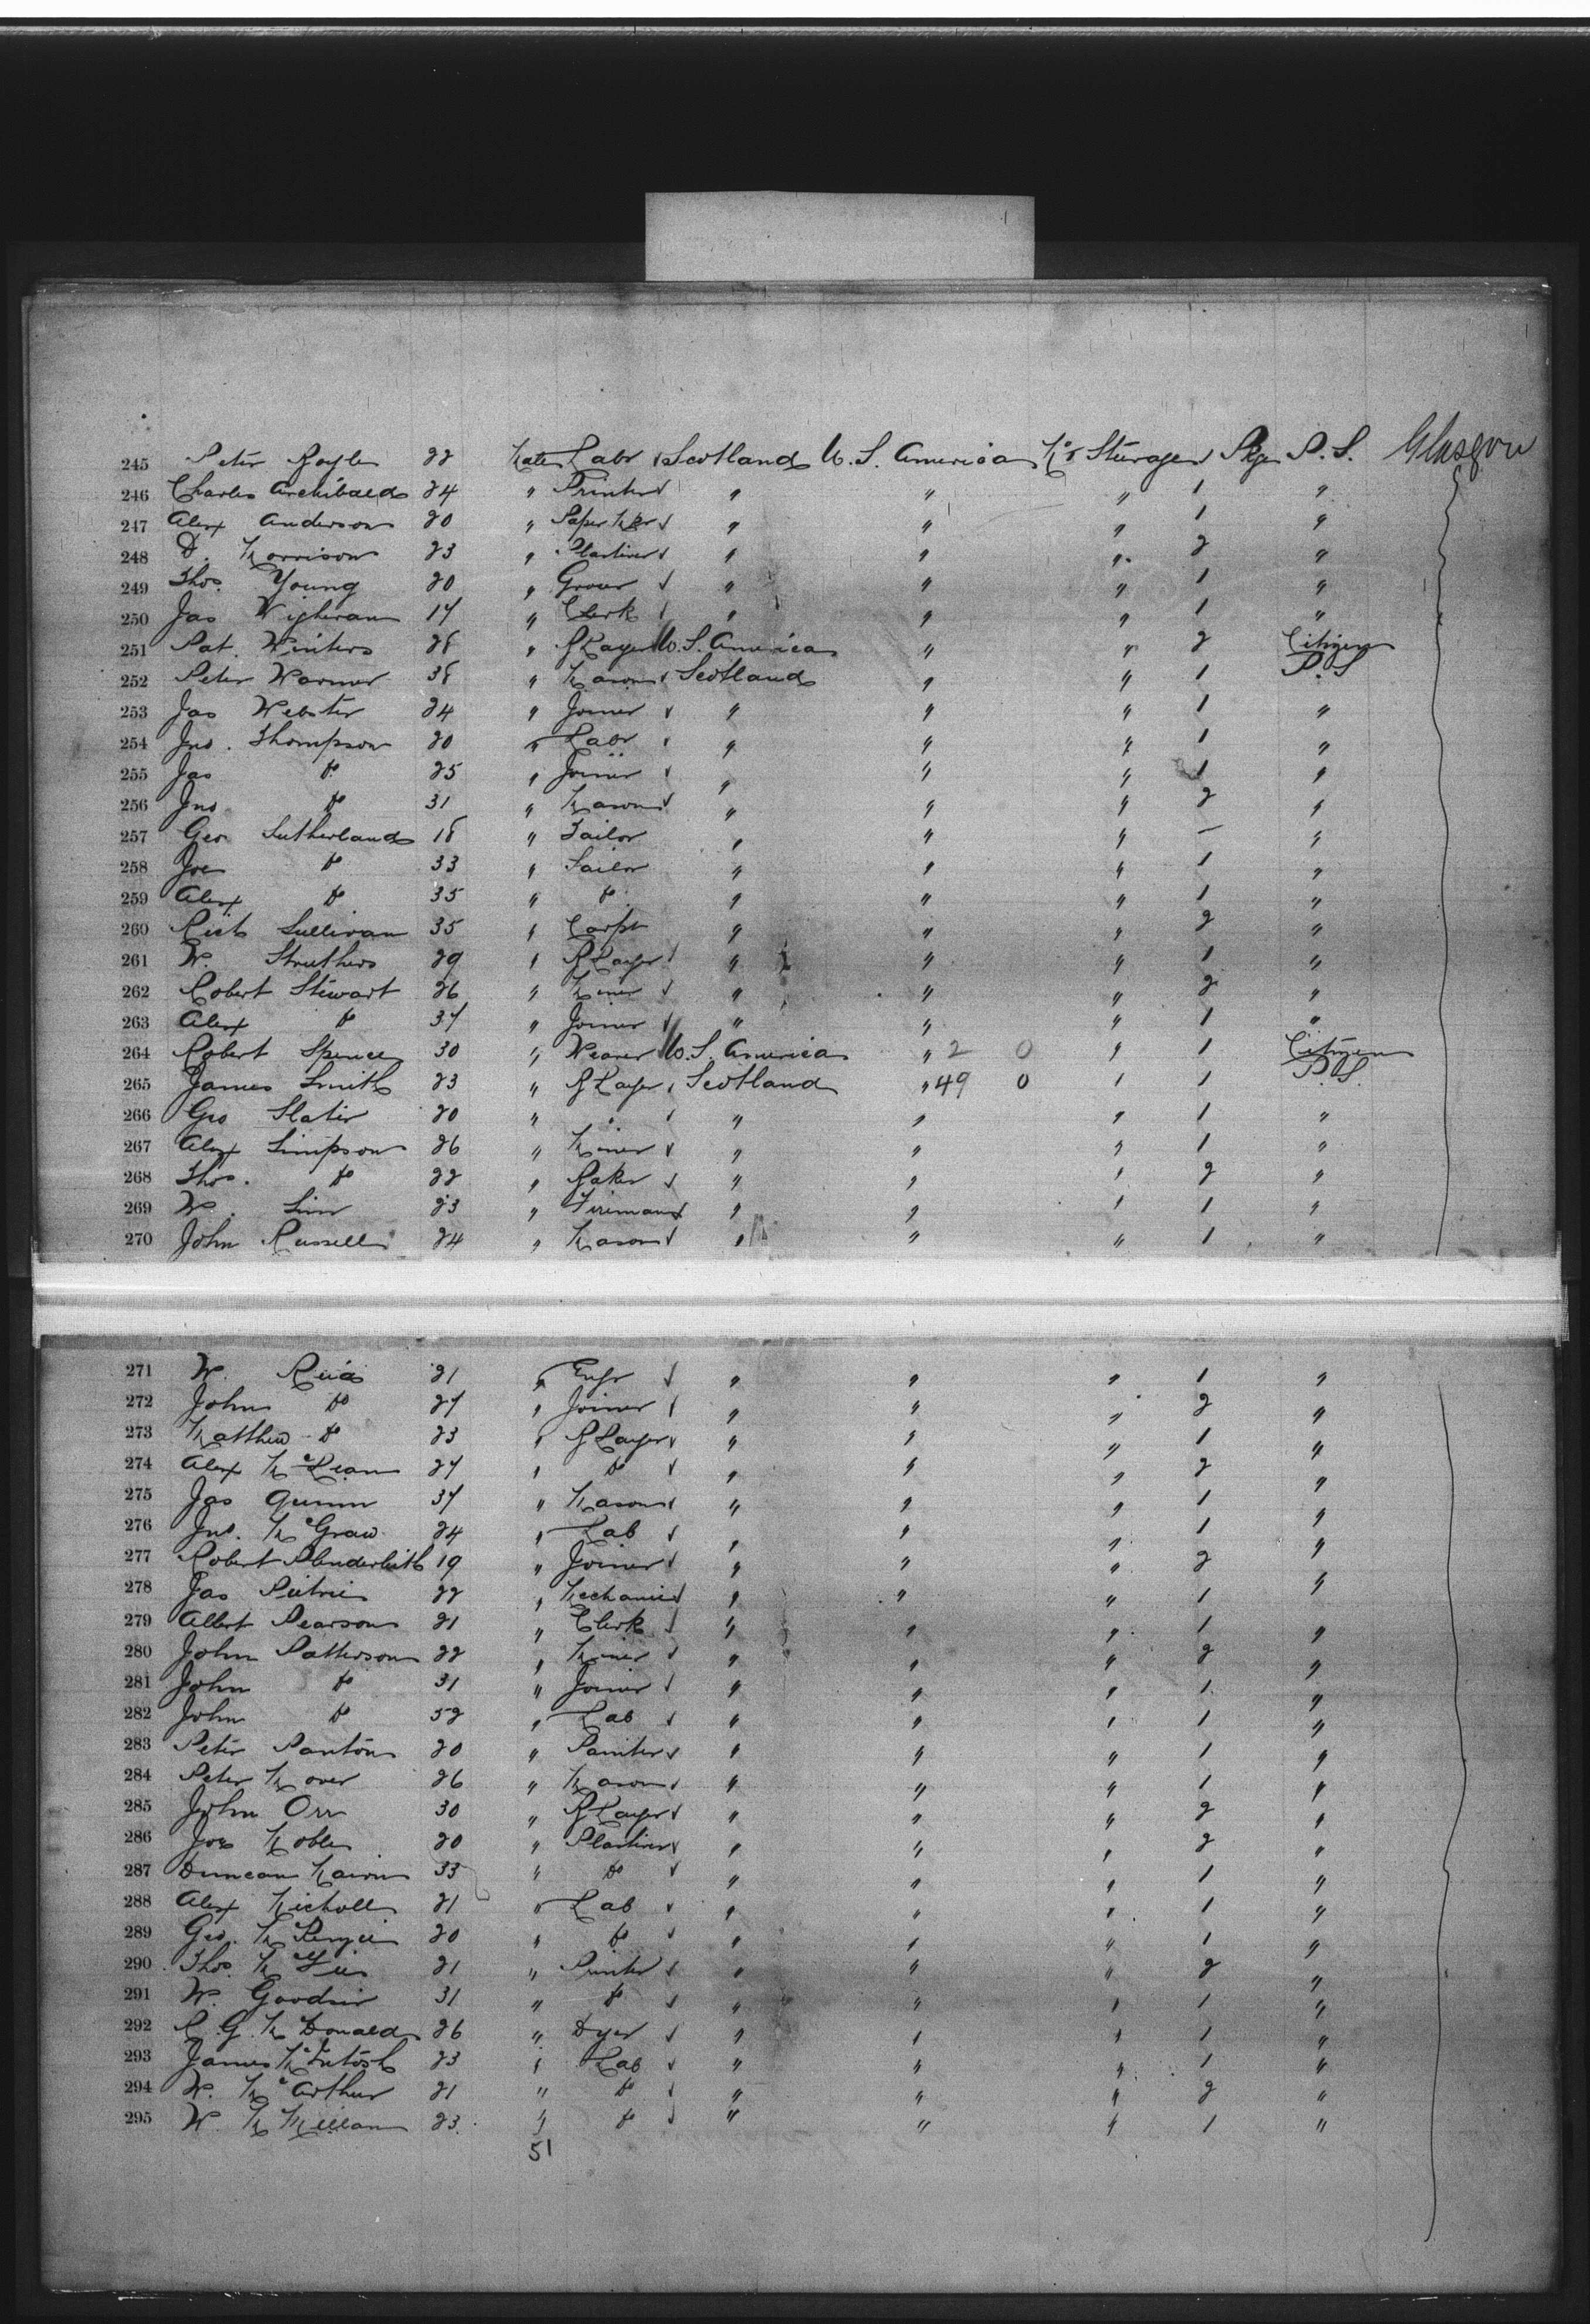 245 Peter Boyle 22 Male Labr Scotland U. S. America Steerage 1 Pkge P. S. Glasgow
246 Charles Archibald 24 " Printer " " " 1 "
247 Alex Anderson 20 " Paper Mkr " " " 1 "
248 D. Morrison 23 " Plasterer " " " 2 "
249 Thos. Young 20 " Grocer " " " 1 "
250 Jas 17 " Clerk " " " 1 "
251 Pat. Winters 28 " BLayer U. S. America " " 2 Citizen
252 Peter Warner 38 " Mason Scotland " " 1 P. S
253 Jas Webster 24 " Joiner " " " 1 "
254 Jno. Thompson 20 " Labr " " " 1 "
255 Jas Do 25 " Joiner " " " 1 "
256 Jno Do 31 " Mason " " " 2 "
257 Geo Sutherland 18 " Tailor " " " — "
258 Joe Do 33 " Sailor " " " 1 "
259 Alex Do 35 " Do " " " 1 "
260 Rich Sullivan 35 " Carptr " " " 2 "
261 W. Struthers 29 " BLayer " " " 1 "
262 Robert Stewart 26 " Miner " " " 2 "
263 Alex Do 37 " Joiner " " " 1 "
264 Robert Spence 30 " Weaver U. S. America " 2 0 " 1 Citizen
265 James Smith 23 " BLayer Scotland " 49 0 " 1 P. S.
266 Geo Slater 20 " " " " " 1 "
267 Alex Simpson 26 " Miner " " " 1 "
268 Thos. Do 22 " Baker " " " 2 "
269 W. Sim 23 " Fireman " " " 1 "
270 John Russell 24 " Mason " " " 1 "
271 W. Reid 21 " Engr " " " 1 "
272 John Do 27 " Joiner " " " 2 "
273 Matthew Do 23 " BLayer " " " 1 "
274 Alex McLean 27 " Do " " " 2 "
275 Jas Gunn 37 " Mason " " " 1 "
276 Jno. McGraw 24 " Lab " " " 1 "
277 Robert Plenderleith 19 " Joiner " " " 2 "
278 Jas Petrie 22 " Mechanic " " " 1 "
279 Albert Pearson 21 " Clerk " " " 1 "
280 John Patterson 22 " Miner " " " 2 "
281 John Do 31 " Joiner " " " 1 "
282 John Do 52 " Lab " " " 1 "
283 Peter Panton 20 " Painter " " " 1 "
284 Peter Mover 26 " Mason " " " 1 "
285 John Orr 30 " BLayer " " " 2 "
286 Jos Noble 20 " Plasterer " " " 2 "
287 Duncan Nairn 33 " Do " " " 1 "
288 Alex Nicholl 21 " Lab " " " 1 "
289 Geo. McKenzie 20 " Do " " " 1 "
290 Thos. McFie 21 " Printer " " " 2 "
291 W. Goodsir 31 " Do " " " 1 "
292 R. G. McDonald 26 " Dyer " " " 1 "
293 James McIntosh 23 " Lab " " " 1 "
294 W. McArthur 21 " Do " " " 2 "
295 W. McMillan 23 " Do " " " 1 "
51